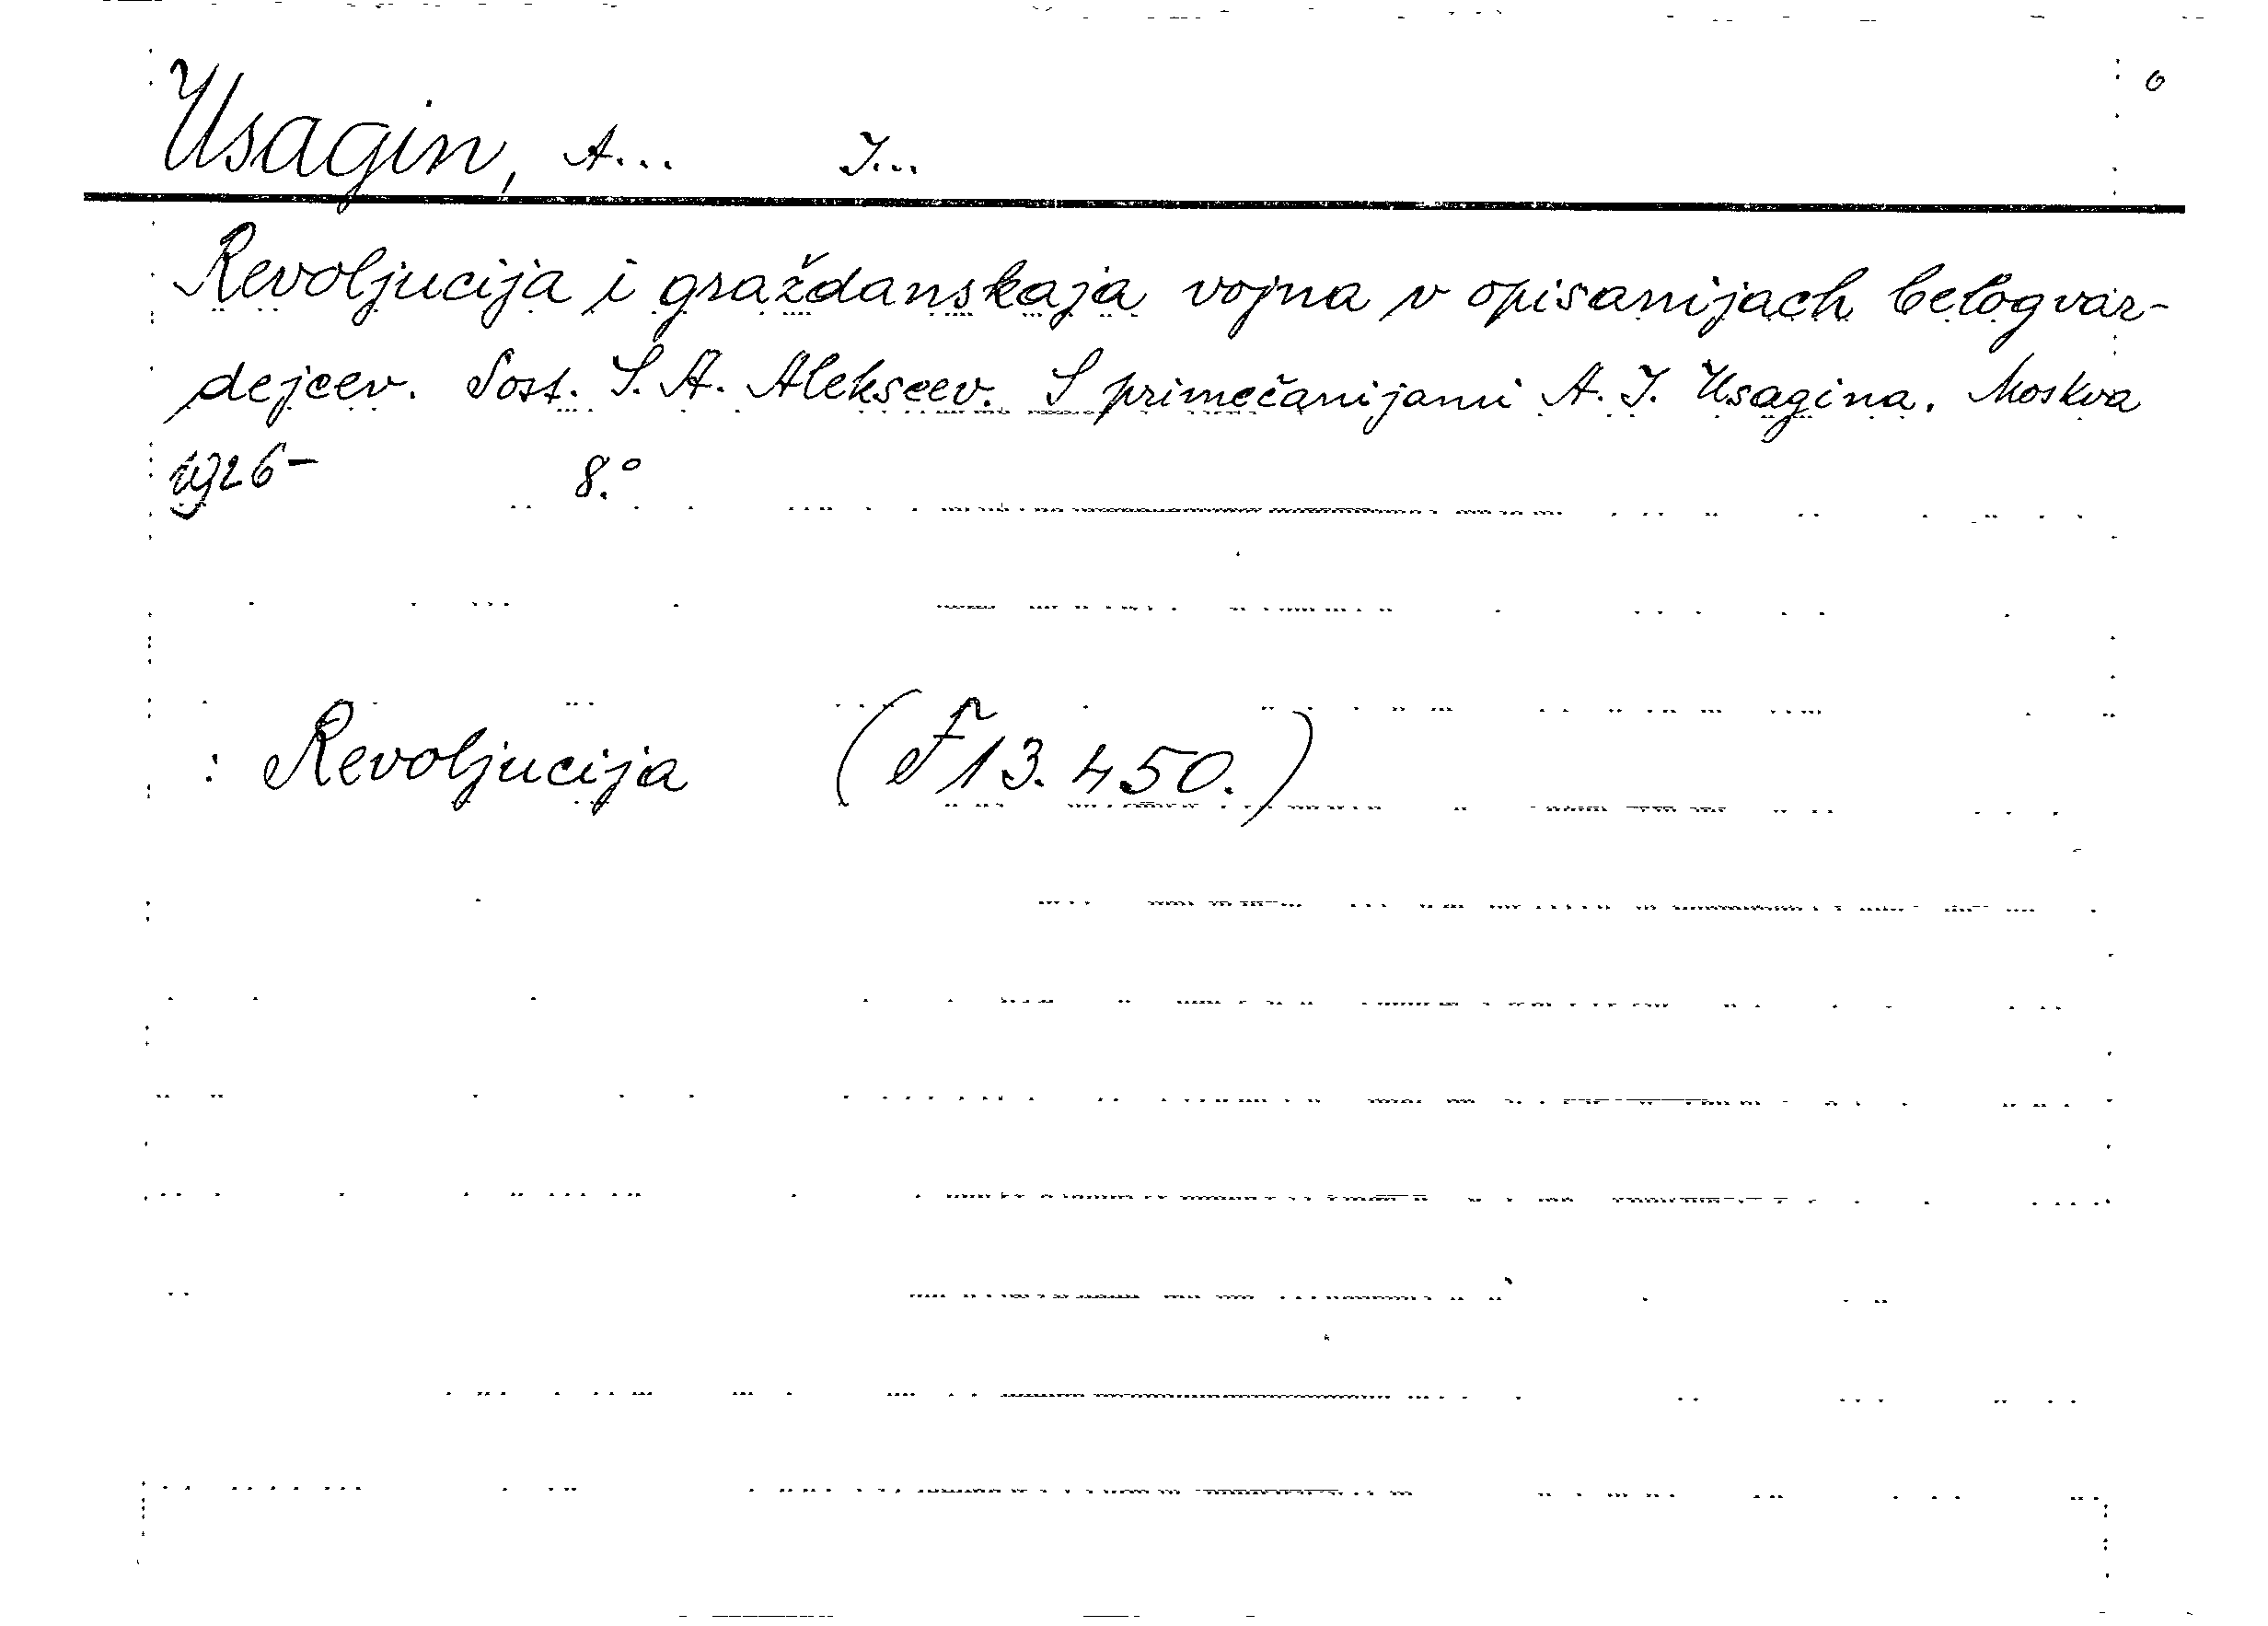 Usagin, A... I...
Revoljucija i graždanskaja vojna v opisanijach belogvar-
dejcev. Sost. S. A. Alekseev. S primečanijami A. I. Usagina. Moskva
1926- 8.°
: Revoljucija (F 13.450.)